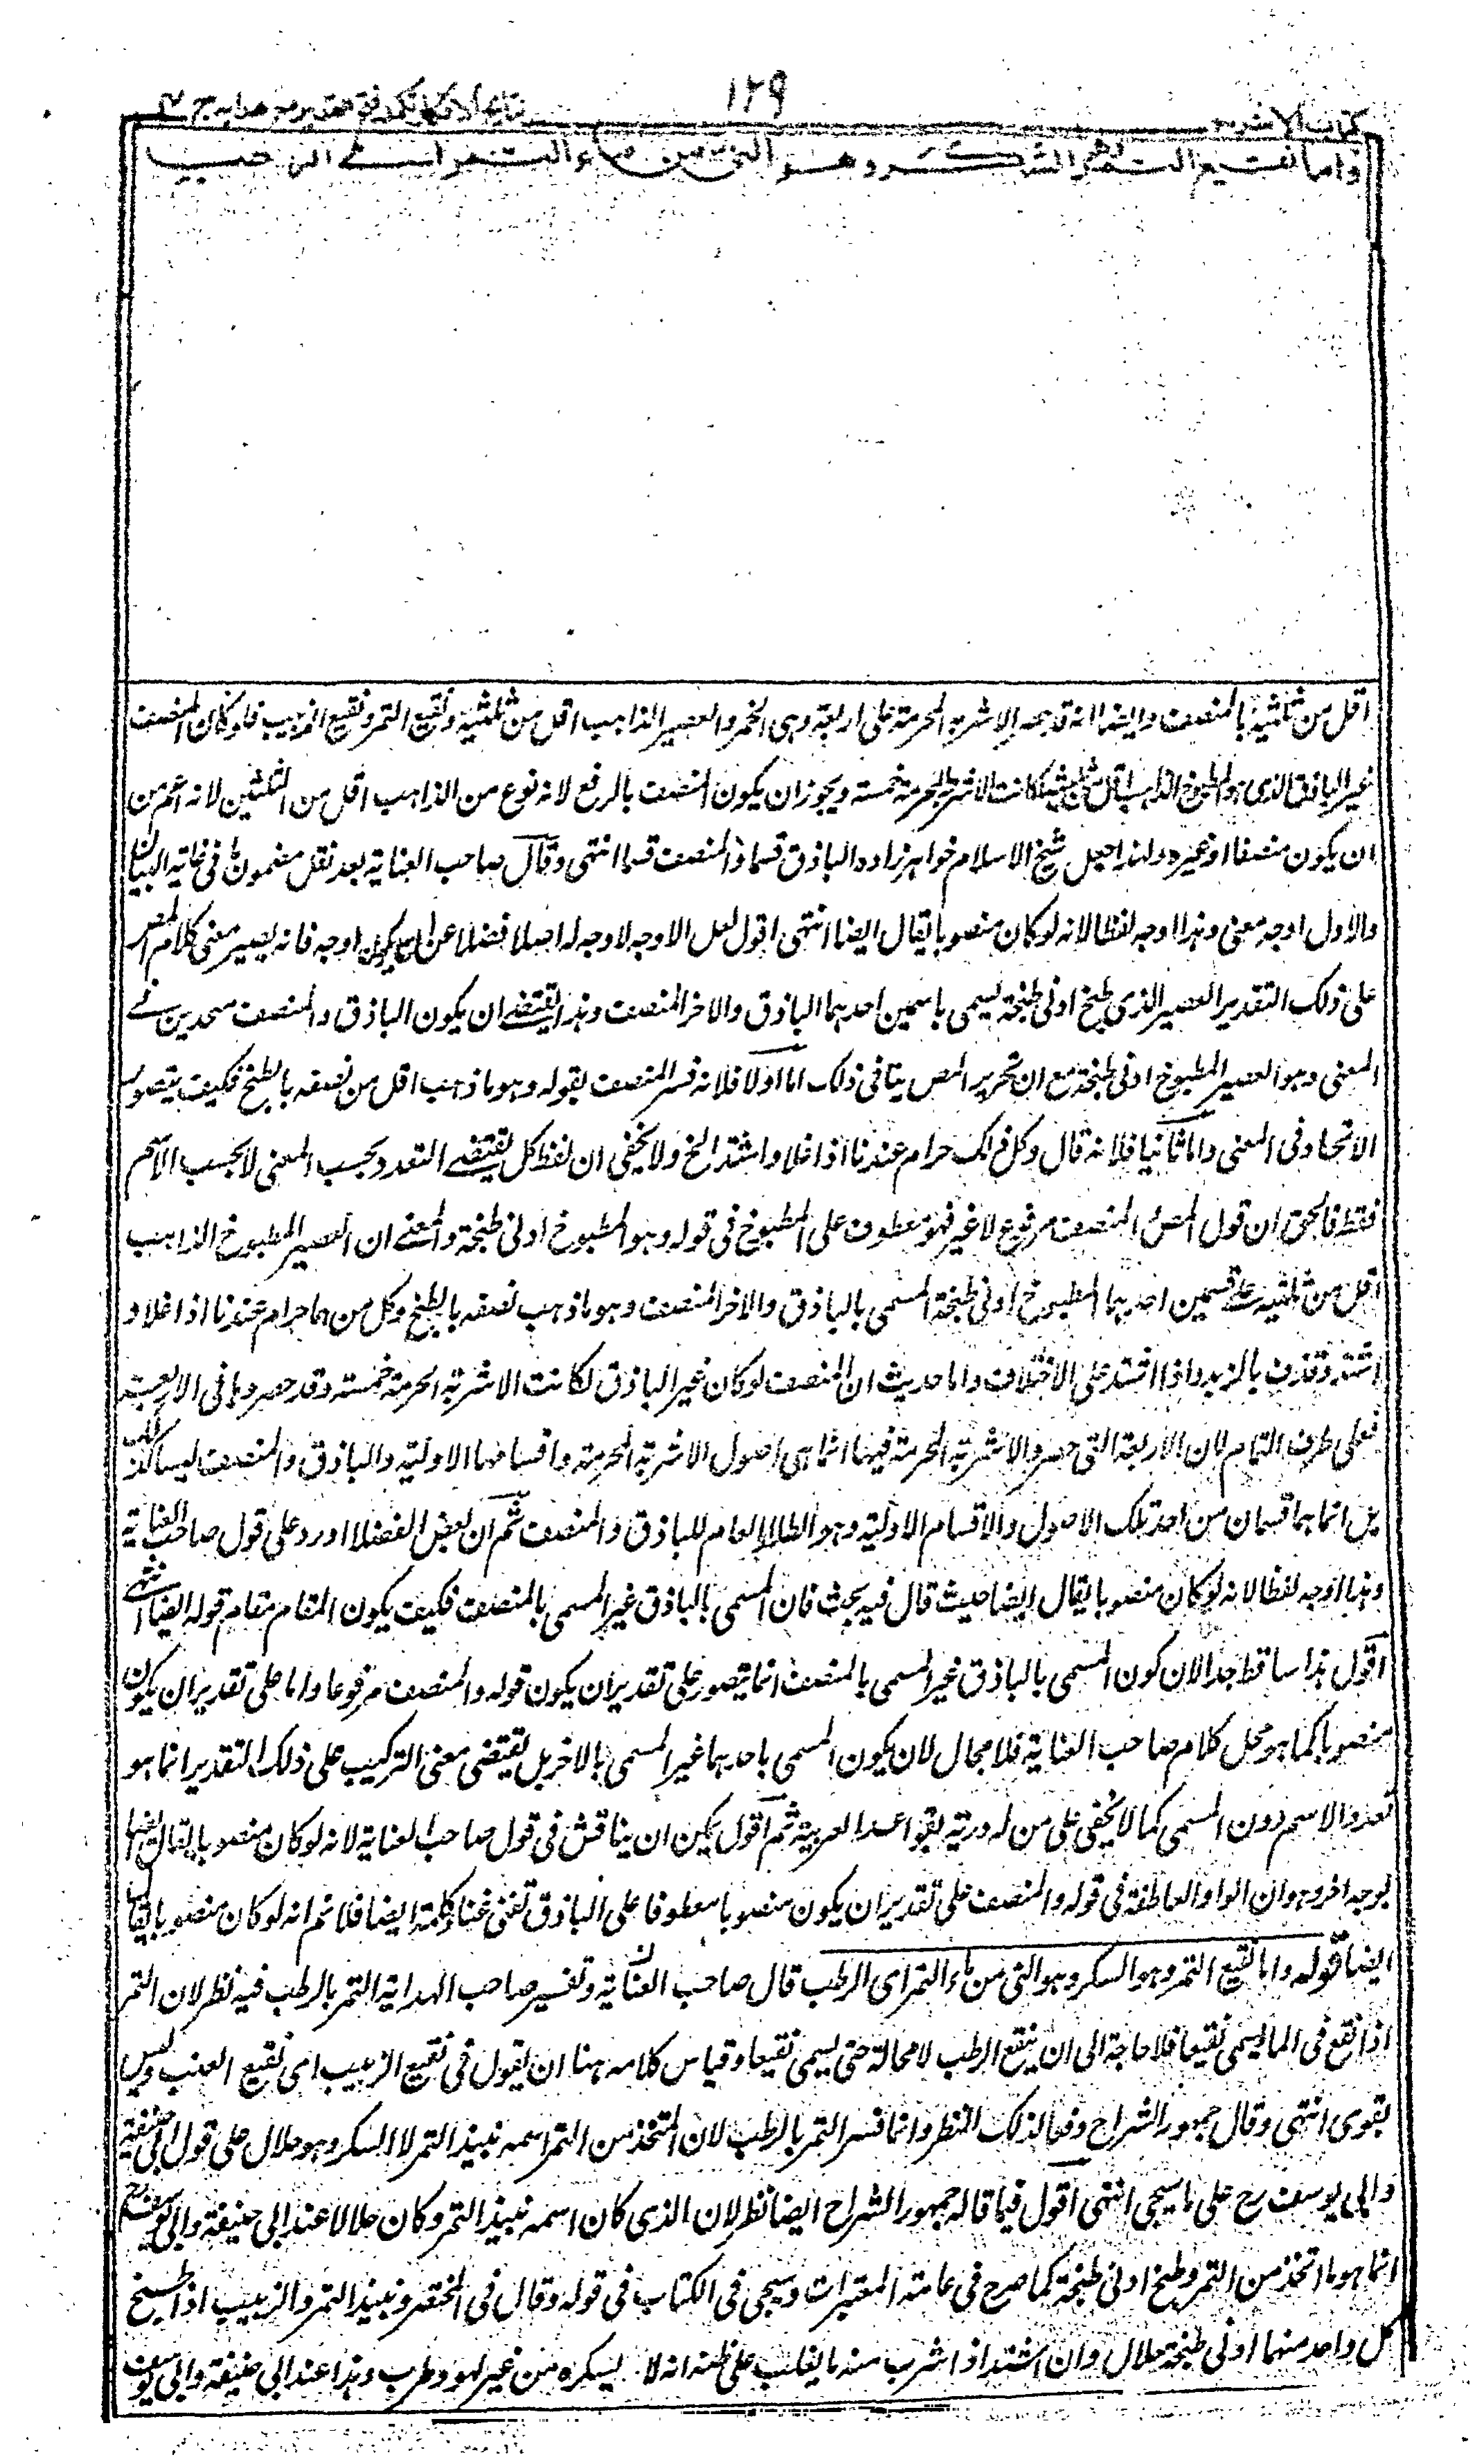 كتاب الاشربة
١٢٩
نتائج الافكار تكملة فتح القدير مع هدايه ج ٤
واما نقيع التمر وهو السكر وهو النئ من ماء التمر اى الرطب
اقل من ثلثيه بالمنصف وايضا انه قد جعل الاشربة المحرمة على اربعة وهى الخمر والعصير الذاهب اقل من ثلثيه ونقيع التمر ونقيع الزبيب فلو كان المنصف
غير الباذق الذى هو المطبوخ الذاهب اقل من ثلثيه لكانت الاشربة المحرمة خمسة ويجوز ان يكون المنصف بالرفع لانه نوع من الذاهب اقل من الثلثين لانه اعم من
ان يكون منصفا او غيره ولهذا جعل شيخ الاسلام خواهر زاده الباذق قسما والمنصف قسما انتهى وقال صاحب العناية بعد نقل مضمون ما فى غاية البيان
والاول اوجه معنى وهذا اوجه لفظا لانه لو كان منصوبا لقال ايضا انتهى اقول لعل الاوجه لا وجه له اصلا فضلا عن ان يكون اوجه فانه يصير معنى كلام المص
على ذلك التقدير العصير الذى طبخ ادنى طبخة يسمى باسمين احدهما الباذق والاخر المنصف وهذا يقتضے ان يكون الباذق والمنصف متحدين فے
المعنى وهو العصير المطبوخ ادنى طبخة مع ان تحرير المص ينافى ذلك اما اولا فلانه فسر المنصف بقوله وهو ما ذهب اقل من نصفه بالطبخ فكيف يتصور
الاتحاد فى المعنى واما ثانيا فلانه قال وكل ذلك حرام عندنا اذا غلا واشتد الخ ولا يخفى ان لفظ كل يقتضے التعدد بحسب المعنى لا بحسب الاسم
فقط فالحق ان قول المص المنصف مرفوع لا غير فهو معطوف على المطبوخ فى قوله وهو المطبوخ ادنى طبخة والمعنے ان العصير المطبوخ الذاهب
اقل من ثلثيه علے قسمين احدهما المطبوخ ادنى طبخة المسمى بالباذق والاخر المنصف وهو ما ذهب نصفه بالطبخ وكل منهما حرام عندنا اذا غلا و
اشتد وقذف بالزبد واذا اشتد على الاختلاف واما حديث ان المنصف لو كان غير الباذق لكانت الاشربة المحرمة خمسة وقد حصروها فى الاربعة
فعلى طرف التمام لان الاربعة التى حصروا الاشربة المحرمة فيها انما هى اصول الاشربة المحرمة واقسامها الاولية والباذق والمنصف ليسا كذلك
بل انما هما قسمان من احد تلك الاصول والاقسام الاولية وهو الطلاء العام للباذق والمنصف ثم ان بعض الفضلا اورد على قول صاحب العناية
وهذا اوجه لفظا لانه لو كان منصوبا لقال ايضا حيث قال فيه بحث فان المسمى بالباذق غير المسمى بالمنصف فكيف يكون المقام مقام قوله ايضا انتهى
اقول هذا ساقط جدا لان كون المسمى بالباذق غير المسمى بالمنصف انما يتصور على تقدير ان يكون قوله والمنصف مرفوعا واما على تقدير ان يكون
منصوبا كما هو محل كلام صاحب العناية فلا مجال لان يكون المسمى باحدهما غير المسمى بالاخر بل يقتضى معنى التركيب على ذلك التقدير انما هو
تعدد الاسم دون المسمى كما لا يخفى على من له دربة بقواعد العربية ثم اقول يمكن ان يناقش فى قول صاحب العناية لانه لو كان منصوبا لقال ايضا
بوجه اخر وهو ان الواو العاطفة فى قوله والمنصف على تقدير ان يكون منصوبا معطوفا على الباذق تغنى غناء كلمة ايضا فلا نم انه لو كان منصوبا لقال
ايضا قوله واما نقيع التمر وهو السكر وهو النئ من ماء التمر اى الرطب قال صاحب العناية وتفسير صاحب الهداية التمر بالرطب فيه نظر لان التمر
اذا نقع فى الماء يسمى نقيعا فلا حاجة الى ان ينقع الرطب لا محالة حتى يسمى نقيعا وقياس كلامه هنا ان يقول فى نقيع الزبيب اى نقيع العنب وليس
بقوى انتهى وقال جمهور الشراح دفعا لذلك النظر وانما فسر التمر بالرطب لان المتخذ من التمر اسمه نبيذ التمر لا السكر وهو حلال على قول ابى حنيفة
وابى يوسف رح على ما سيجى انتهى اقول فيما قاله جمهور الشراح ايضا نظر لان الذى كان اسمه نبيذ التمر وكان حلالا عند ابى حنيفة وابى يوسف رح
انما هو ما اتخذ من التمر وطبخ ادنى طبخة كما صرح فى عامة المعتبرات وسيجى فى الكتاب فى قوله وقال فى المختصر ونبيذ التمر والزبيب اذا طبخ
كل واحد منهما ادنى طبخة حلال وان اشتد اذا شرب منه ما يغلب على ظنه انه لا يسكره من غير لهو وطرب وهذا عند ابى حنيفة وابى يوسف